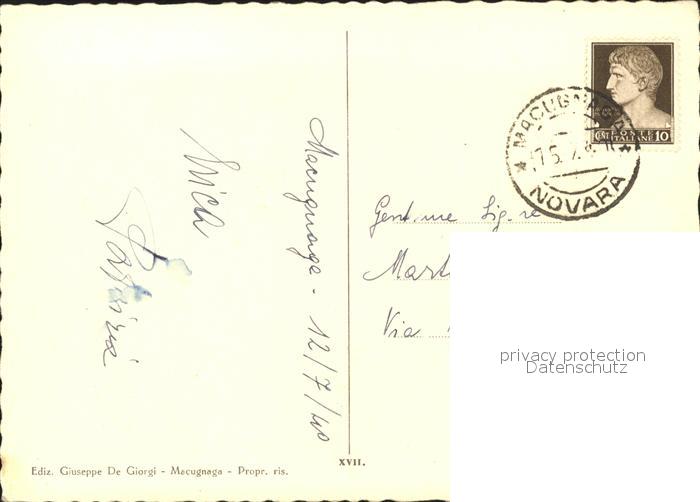 Macugnaga - 12/7/40
POSTE
ITALIANE
10
MACUGNAGA
NOVARA
Gent.me Sig.re
Mart
Via
privacy protection
Datenschutz
XVII.
Ediz. Giuseppe De Giorgi - Macugnaga - Propr. ris.